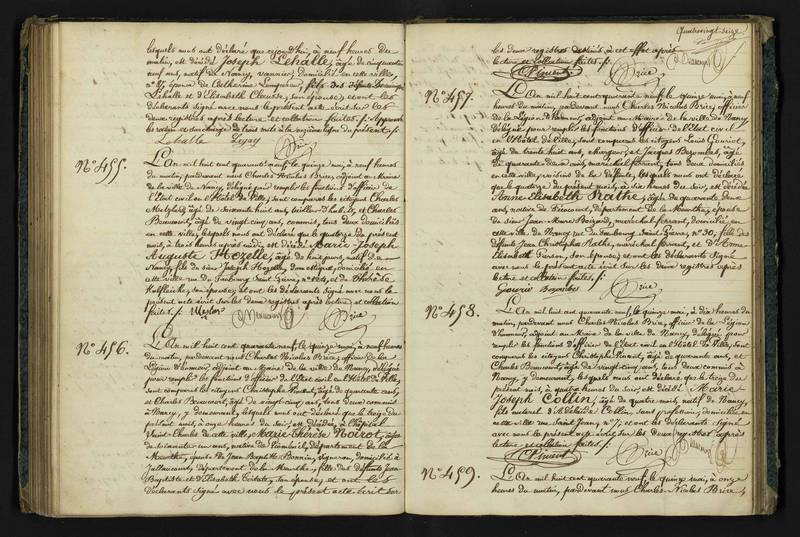 lesquels nous ont déclaré que cejourd'hui, à neuf heures du
matin, est décédé Joseph Lehalle, âgé de cinquante
neuf ans, natif de Nancy, vannier, domicilié en cette ville,
époux de Catherine fils des défunts
Lehalle et d'Elisabeth son épouse; et ont les
déclarants signé avec nous le présent acte écrit sur les
deux registres après lecture et collation faites. Approuvé
Lehalle Brice
N° 455.
L'An mil huit cent quarante neuf, le quinze mai, à neuf heures
du matin, pardevant nous Charles Nicolas Brice, adjoint au Maire
de la ville de Nancy, délégué pour remplir les fonctions d'officier de
l'Etat civil en l'Hôtel de Ville, sont comparus les citoyens Charles
âgé de soixante huit ans, tailleur d'habits, et Charles
Beauvert, âgé de vingt-cinq ans, commis, tous deux domiciliés
en cette ville; lesquels nous ont déclaré que le quatorze du présent
mois, à trois heures après midi, est décédé Marie-Joseph
Auguste Hozelle, âgé de huit jours, natif de
Nancy, fils de sieur Joseph Hozelle, domestique, domicilié en
cette ville rue du faubourg Saint Pierre, et de Thérèse
son épouse; et ont les déclarants signé avec nous le
présent acte écrit sur les deux registres après lecture et collation
faites.
Brice
N° 456.
L'An mil huit cent quarante neuf, le quinze mai, à neuf heures
du matin, pardevant nous Charles Nicolas Brice, officier de la
Légion d'honneur, adjoint au Maire de la ville de Nancy, délégué
pour remplir les fonctions d'officier de l'Etat civil en l'Hôtel de Ville,
sont comparus les citoyens Christophe âgé de quarante ans, et
Charles Beauvert, âgé de vingt-cinq ans, tous deux commis
à Nancy, y demeurant, lesquels nous ont déclaré que le treize du
présent mois, à onze heures du soir, est décédée, à l'hôpital
Saint-Charles de cette ville, Marie-Thérèse Noirot, âgée
de soixante ans, native de département de la
Meurthe, épouse de Jean Baptiste vigneron, domicilié à
Jallaucourt, département de la Meurthe, fille des défunts Jean
Baptiste et d'Elisabeth son épouse; et ont les
déclarants signé avec nous le présent acte écrit sur
Quatrevingt-seize
les deux registres destinés à cet effet après
lecture et collation faites.
Brice
N° 457.
L'An mil huit cent quarante neuf, le quinze mai, à neuf
heures du matin, pardevant nous Charles Nicolas Brice, officier
de la Légion d'honneur, adjoint au Maire de la ville de Nancy
délégué pour remplir les fonctions d'officier de l'Etat civil
en l'Hôtel de Ville, sont comparus les citoyens Louis
âgé de trente huit ans, et Jacques âgé
de quarante deux ans, maréchal ferrant, tous deux domiciliés
en cette ville, de la défunte, lesquels nous ont déclaré
que le quatorze du présent mois, à six heures du soir, est décédée
Anne-Elisabeth Rathe, âgée de quarante deux
ans, native de département de la Meurthe, épouse
de sieur Jean-Marie maréchal ferrant, domicilié en
cette ville de Nancy rue du faubourg Saint Pierre, n° 30, fille des
défunts Jean Christophe Rathe, maréchal ferrant, et d'Anne
Elisabeth son épouse; et ont les déclarants signé
avec nous le présent acte écrit sur les deux registres après
lecture et collation faites.
Brice
N° 458.
L'An mil huit cent quarante neuf, le quinze mai, à dix heures du
matin, pardevant nous Charles Nicolas Brice, officier de la Légion
d'honneur, adjoint au Maire de la ville de Nancy, délégué pour
remplir les fonctions d'officier de l'Etat civil en l'Hôtel de Ville, sont
comparus les citoyens Christophe âgé de quarante ans, et
Charles Beauvert, âgé de vingt-cinq ans, tous deux commis à
Nancy, y demeurant, lesquels nous ont déclaré que le treize du
présent mois, à quatre heures du soir, est décédé Marie-
Joseph Collin, âgé de quatre mois, natif de Nancy,
fils naturel d'Adélaïde Collin, sans profession, domiciliée en
cette ville rue Saint Jean, n° 7; et ont les déclarants signé
avec nous le présent acte écrit sur les deux registres après
lecture et collation faites.
Brice
N° 459.
L'An mil huit cent quarante neuf, le quinze mai, à onze
heures du matin, pardevant nous Charles-Nicolas Brice,